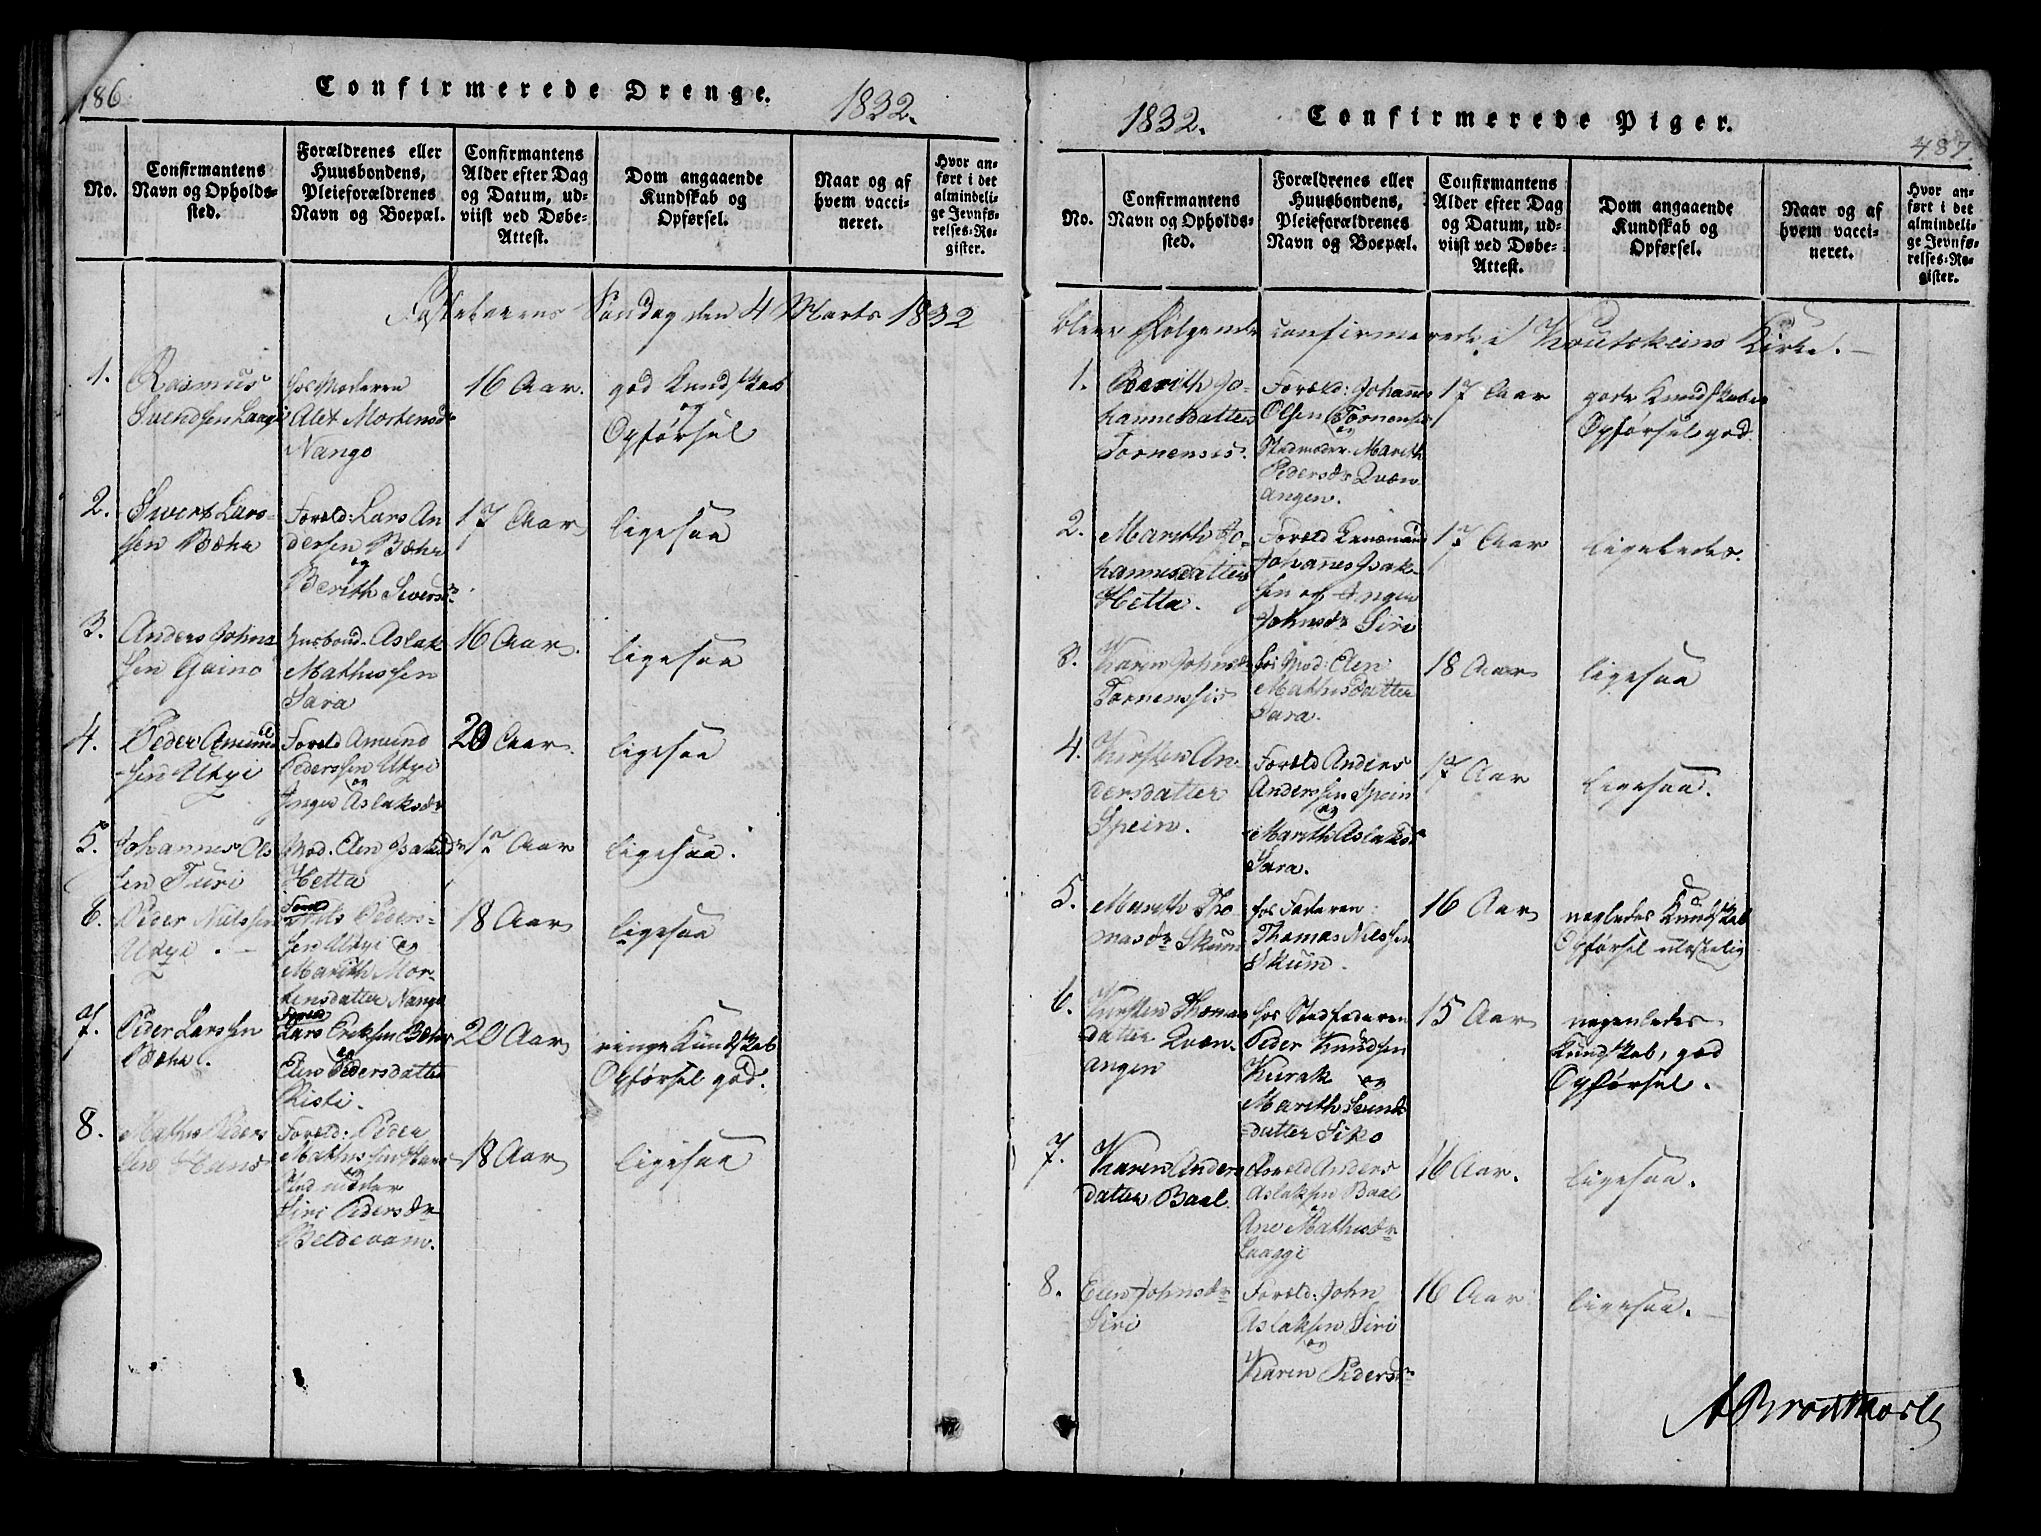 186
Confirmerede Drenge.
1832.
No.
Confirmantens
Navn og Opholds-
sted.
Forældrenes eller
Huusbondens,
Pleieforældrenes
Navn og Boepæl.
Confirmantens
Alder efter Dag
og Datum, ud-
viist ved Døbe-
Attest.
Dom angaaende
Kundskab og
Opførsel.
Naar og af
hvem vacci-
neret.
Hvor an-
ført i det
almindeli-
ge Jevnfø-
relses-Re-
gister.
Søndag den 4 Marts 1832
1.
Rasmus
Svendsen Laagie
hos Moderen
Alet Mortensdr
Nango
16 Aar.
god Kundskab
og
Opførsel
2.
Siwert Lars-
sen Bæhr
Foreld: Lars An
dersen Bæhr
og
Berith Siversdr
17 Aar
ligesaa
3.
Anders Johns
sen Gaino
husbond. Aslak
Mathissen
Sara
16 Aar.
ligesaa
4.
Peder Amund
sen Utzi
Foreld Amund
Pedersen Utzi
og
Inger Aslaksdr
20 Aar.
ligesaa
5.
Johannes Ols
sen Turi
Mod. Elen Isaksdr
Hetta
17 Aar
ligesaa.
6.
Peder Nilssen
Utzi.
Nils Peders-
sen Utzi og
Marith Mor-
tensdatter Nango
18 Aar
ligesaa
7.
Peder Larssen
Bæhr.
Lars Eriksen Bæhr
og
Elen Pedersdatter
Risti.
20 Aar
ringe Kundskab
Opførsel god.
8.
Mathis Peders
sen Hans
Foreld: Peder
Mathissen Hans
og
Siri Pedersdr
18 Aar
ligesaa
1832.
Confirmerede Piger.
487
No.
Confirmantens
Navn og Opholds-
sted.
Forældrenes eller
Huusbondens,
Pleieforældrenes
Navn og Boepæl.
Confirmantens
Alder efter Dag
og Datum, ud-
viist ved Døbe-
Attest.
Dom angaaende
Kundskab og
Opførsel.
Naar og af
hvem vacci-
neret.
Hvor an-
ført i det
almindeli-
ge Jevnfø-
relses-Re-
gister.
bleve Følgende confirmerede i Koutokeino Kirke.
1.
Berith Jo-
hannesdatter
Tornensis.
Foreld: Johannes
Olsen Tornensis
og
Stedmoder Marith
Pedersdr Qvæn
angen.
17 Aar
gode Kundskaber
Opførsel god.
2.
Marith Jo-
hannesdatter
Hetta.
Foreld
Johannes Isak-
sen og Inger
Johnsdr Siri
17 Aar
ligeledes.
3.
Karen Johnsdr
Tornensis
hos Mod: Elen
Mathisdatter
Sara.
18 Aar
ligesaa
4.
Kirsten An-
dersdatter
Spein.
Foreld Anders
Anderssen Spein
og
Marith Aslaksdr
Sara.
17 Aar
ligesaa.
5.
Marith Tho
masdr Skum
hos Faderen:
Thomas Nilssen
Skum.
16 Aar
Kundskab
Opførsel
6.
Kirsten Thomas
datter Qvæn-
angen
hos Stedfaderen
Peder Knudsen
Kurak og
Marith Svends
datter Siko
15 Aar
nogenledes
Kundskab, god
Opførsel.
7.
Karen Anders
datter Baal
Foreld Anders
Aslaksen Baal
Ane Mathisdr
Laaggi
16 Aar.
ligesaa.
8.
Elen Johnsdr
Siri
Foreld: John
Aslaksen Siri
og
Karen Pedersdr
16 Aar
ligesaa.